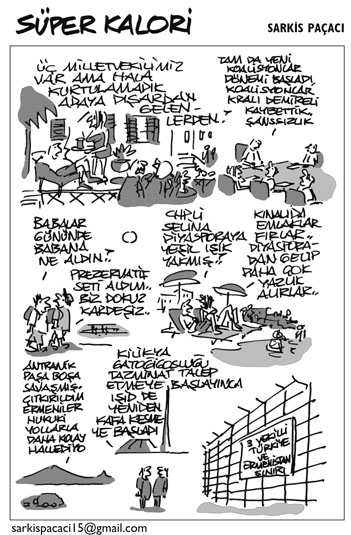 SÜPER KALORİ
SARKİS PAÇACI
ÜÇ MİLLETVEKİLİMİZ
VAR AMA HALA
KURTULAMADIK
ADAYA DIŞARDAN
GELEN-
LERDEN..
TAM DA YENİ
KOALİSYONLAR
DÖNEMİ BAŞLADI,
KOALİSYONLAR
KRALI DEMİREL'İ
KAYBETTİK..
ŞANSSIZLIK
BABALAR
GÜNÜNDE
BABANA
NE ALDIN..
PREZERVATİF
SETİ ALDIM..
BİZ DOKUZ
KARDEŞİZ..
CHP'Lİ
SELİNA
DİYASPORAYA
YEŞİL IŞIK
YAKMIŞ..
KINALIDA
EMLAKLAR
FIRLAR..
DİYASPORA-
DAN GELİP
DAHA ÇOK
YAZLIK
ALIRLAR..
ANTRANİK
PAŞA BOŞA
SAVAŞMIŞ..
ÇITKIRILDIM
ERMENİLER
HUKUKİ
YOLLARLA
DAHA KOLAY
HALLEDİYO
KİLİKYA
GATOĞİGOSLUĞU
TAZMİNAT TALEP
ETMEYE BAŞLAYINCA
IŞİD DE
YENİDEN
KAFA KESME-
YE BAŞLADI
3 VEKİLLİ
TÜRKİYE
VE
ERMENİSTAN
SINIRI
sarkispacaci15@gmail.com